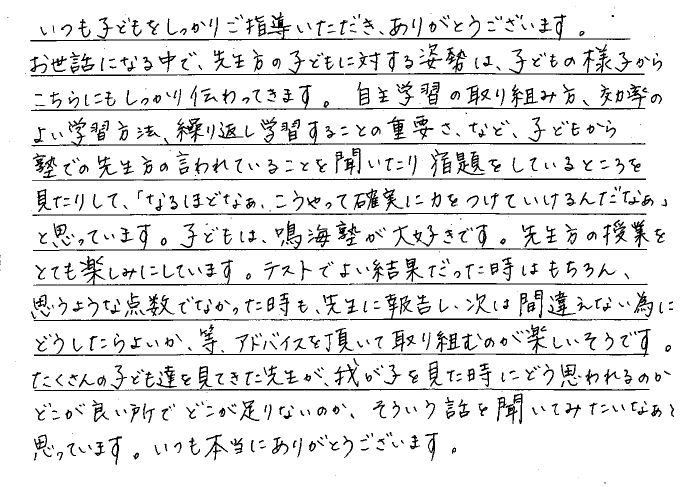 いつも子どもをしっかりご指導いただき、ありがとうございます。
お世話になる中で、先生方の子どもに対する姿勢は、子どもの様子から
こちらにもしっかり伝わってきます。自主学習の取り組み方、効率の
よい学習方法、繰り返し学習することの重要さ、など、子どもから
塾での先生方の言われていることを聞いたり宿題をしているところを
見たりして、「なるほどなぁ、こうやって確実に力をつけていけるんだなぁ」
と思っています。子どもは、鳴海塾が大好きです。先生方の授業を
とても楽しみにしています。テストでよい結果だった時はもちろん、
思うような点数でなかった時も、先生に報告し、次は間違えない為に
どうしたらよいか、等、アドバイスを頂いて取り組むのが楽しいそうです。
たくさんの子ども達を見てきた先生が、我が子を見た時にどう思われるのか
どこが良い所でどこが足りないのか、そういう話を聞いてみたいなぁと
思っています。いつも本当にありがとうございます。